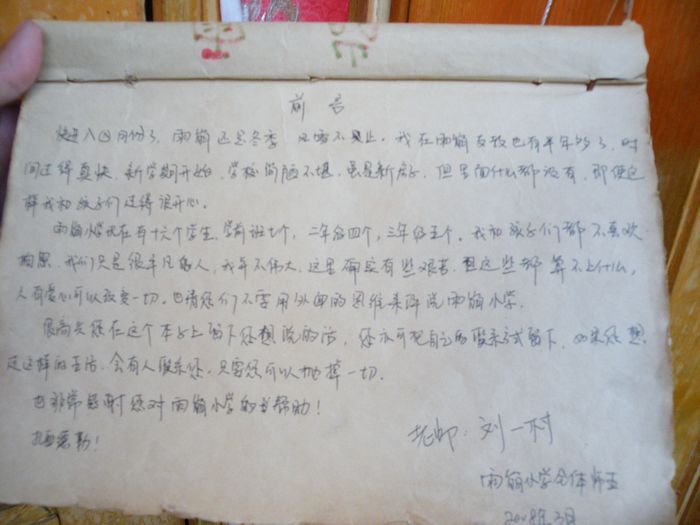 前言
快进入四月份了，雨崩还是冬季，风雪不见止。我在雨崩支教也有半年多了，时
间过得真快，新学期开始，学校简陋不堪，虽是新房子，但里面什么都没有，即使这
样我和孩子们过得很开心。
雨崩小学现在有十六个学生，学前班七个，二年级四个，三年级五个。我和孩子们都不喜欢
拍照，我们只是很平凡的人，我并不伟大，这里确实有些艰苦，但这些都算不上什么，
人有爱心可以改变一切。也请您们不要用外面的思维来评说雨崩小学。
很高兴您在这个本子上留下您想说的话，您亦可把自己的联系方式留下，如果您想
过这样的生活，会有人联系您，只要您可以抛掉一切。
也非常感谢您对雨崩小学的帮助！
扎西德勒！
老师：刘一村
雨崩小学全体师生
3月